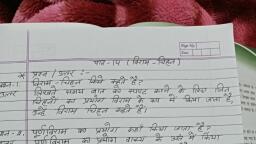 पाठ-14 (विराम-चिह्न)
* प्रश्न / उत्तर :-
प्रश्न-1. विराम-चिह्न किसे कहते है?
उत्तर लिखते समय बात को स्पष्ट करने के लिए जिन
चिह्नों का प्रयोग विराम के रूप में किया जाता है,
उन्हें विराम चिह्न कहते हैं।
प्रश्न-2. पूर्ण विराम का प्रयोग कहाँ किया जाता है?
पूर्ण विराम का प्रयोग वाक्य के अंत में किया